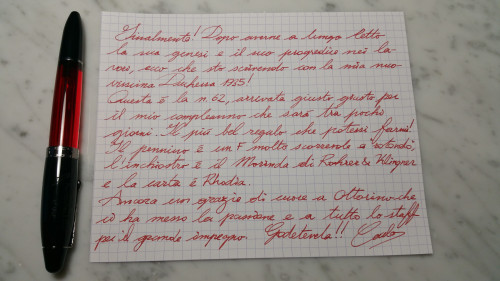 Finalmente! Dopo avere a lungo letto
la sua genesi e il suo progredire nei la-
vori, ecco che sto scrivendo con la mia nuo-
vissima Duchessa 1985!
Questa è la n. 62, arrivata giusto giusto per
il mio compleanno che sarà tra pochi
giorni. Il più bel regalo che potessi farmi!
Il pennino è un F molto scorrevole e rotondo,
l'inchiostro è il Morinda di Rohrer & Klingner
e la carta è Rhodia.
Ancora un grazie di cuore a Ottorino che
ci ha messo la passione e a tutto lo staff
per il grande impegno. Godetevela!! Carlo